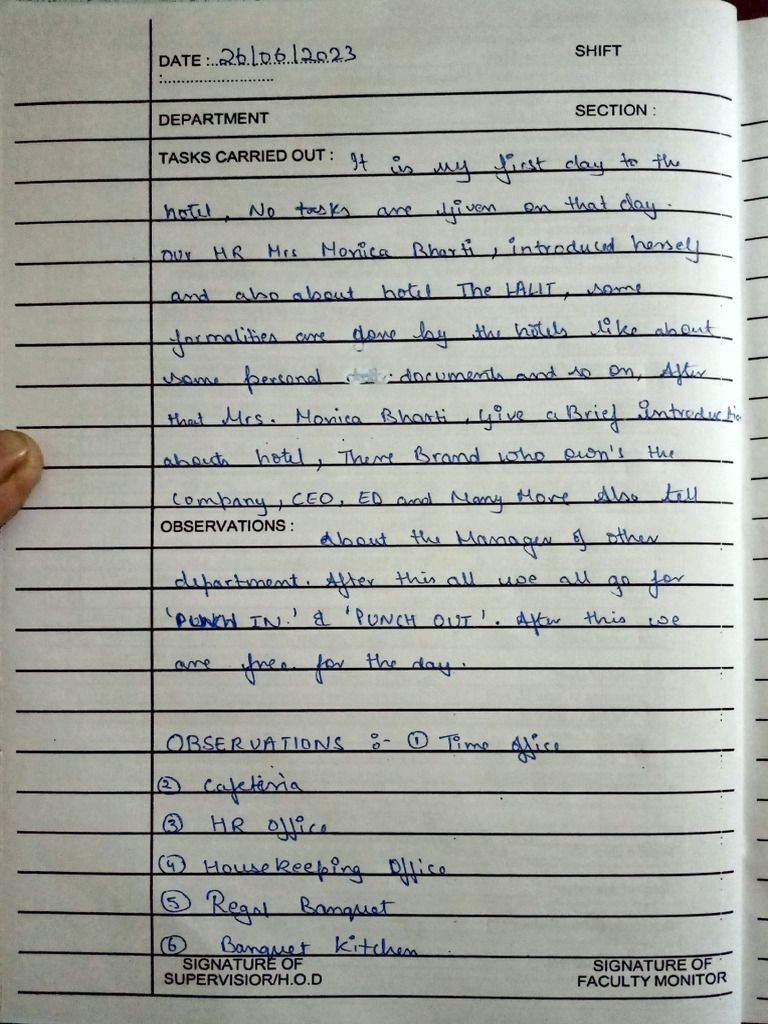 DATE :..26/06/2023
SHIFT
:..........................
DEPARTMENT
SECTION :
TASKS CARRIED OUT : It is my first day to the
hotel, No tasks are given on that day.
our HR Mrs Monica Bharti, introduced herself
and also about hotel The LALIT, some
formalities are done by the hotels like about
some personal documents and so on, After
that Mrs. Monica Bharti, give a Brief introductio
about hotel, There Brand who own's the
company, CEO, ED and Many More Also tell
OBSERVATIONS : about the Manager of other
department. After this all we all go for
'PUNCH IN.' & 'PUNCH OUT'. After this we
are free for the day.
OBSERVATIONS :- ① Time office
② Cafeteria
③ HR office
④ Housekeeping Office
⑤ Regal Banquet
⑥ Banquet Kitchen
SIGNATURE OF
SUPERVISIOR/H.O.D
SIGNATURE OF
FACULTY MONITOR